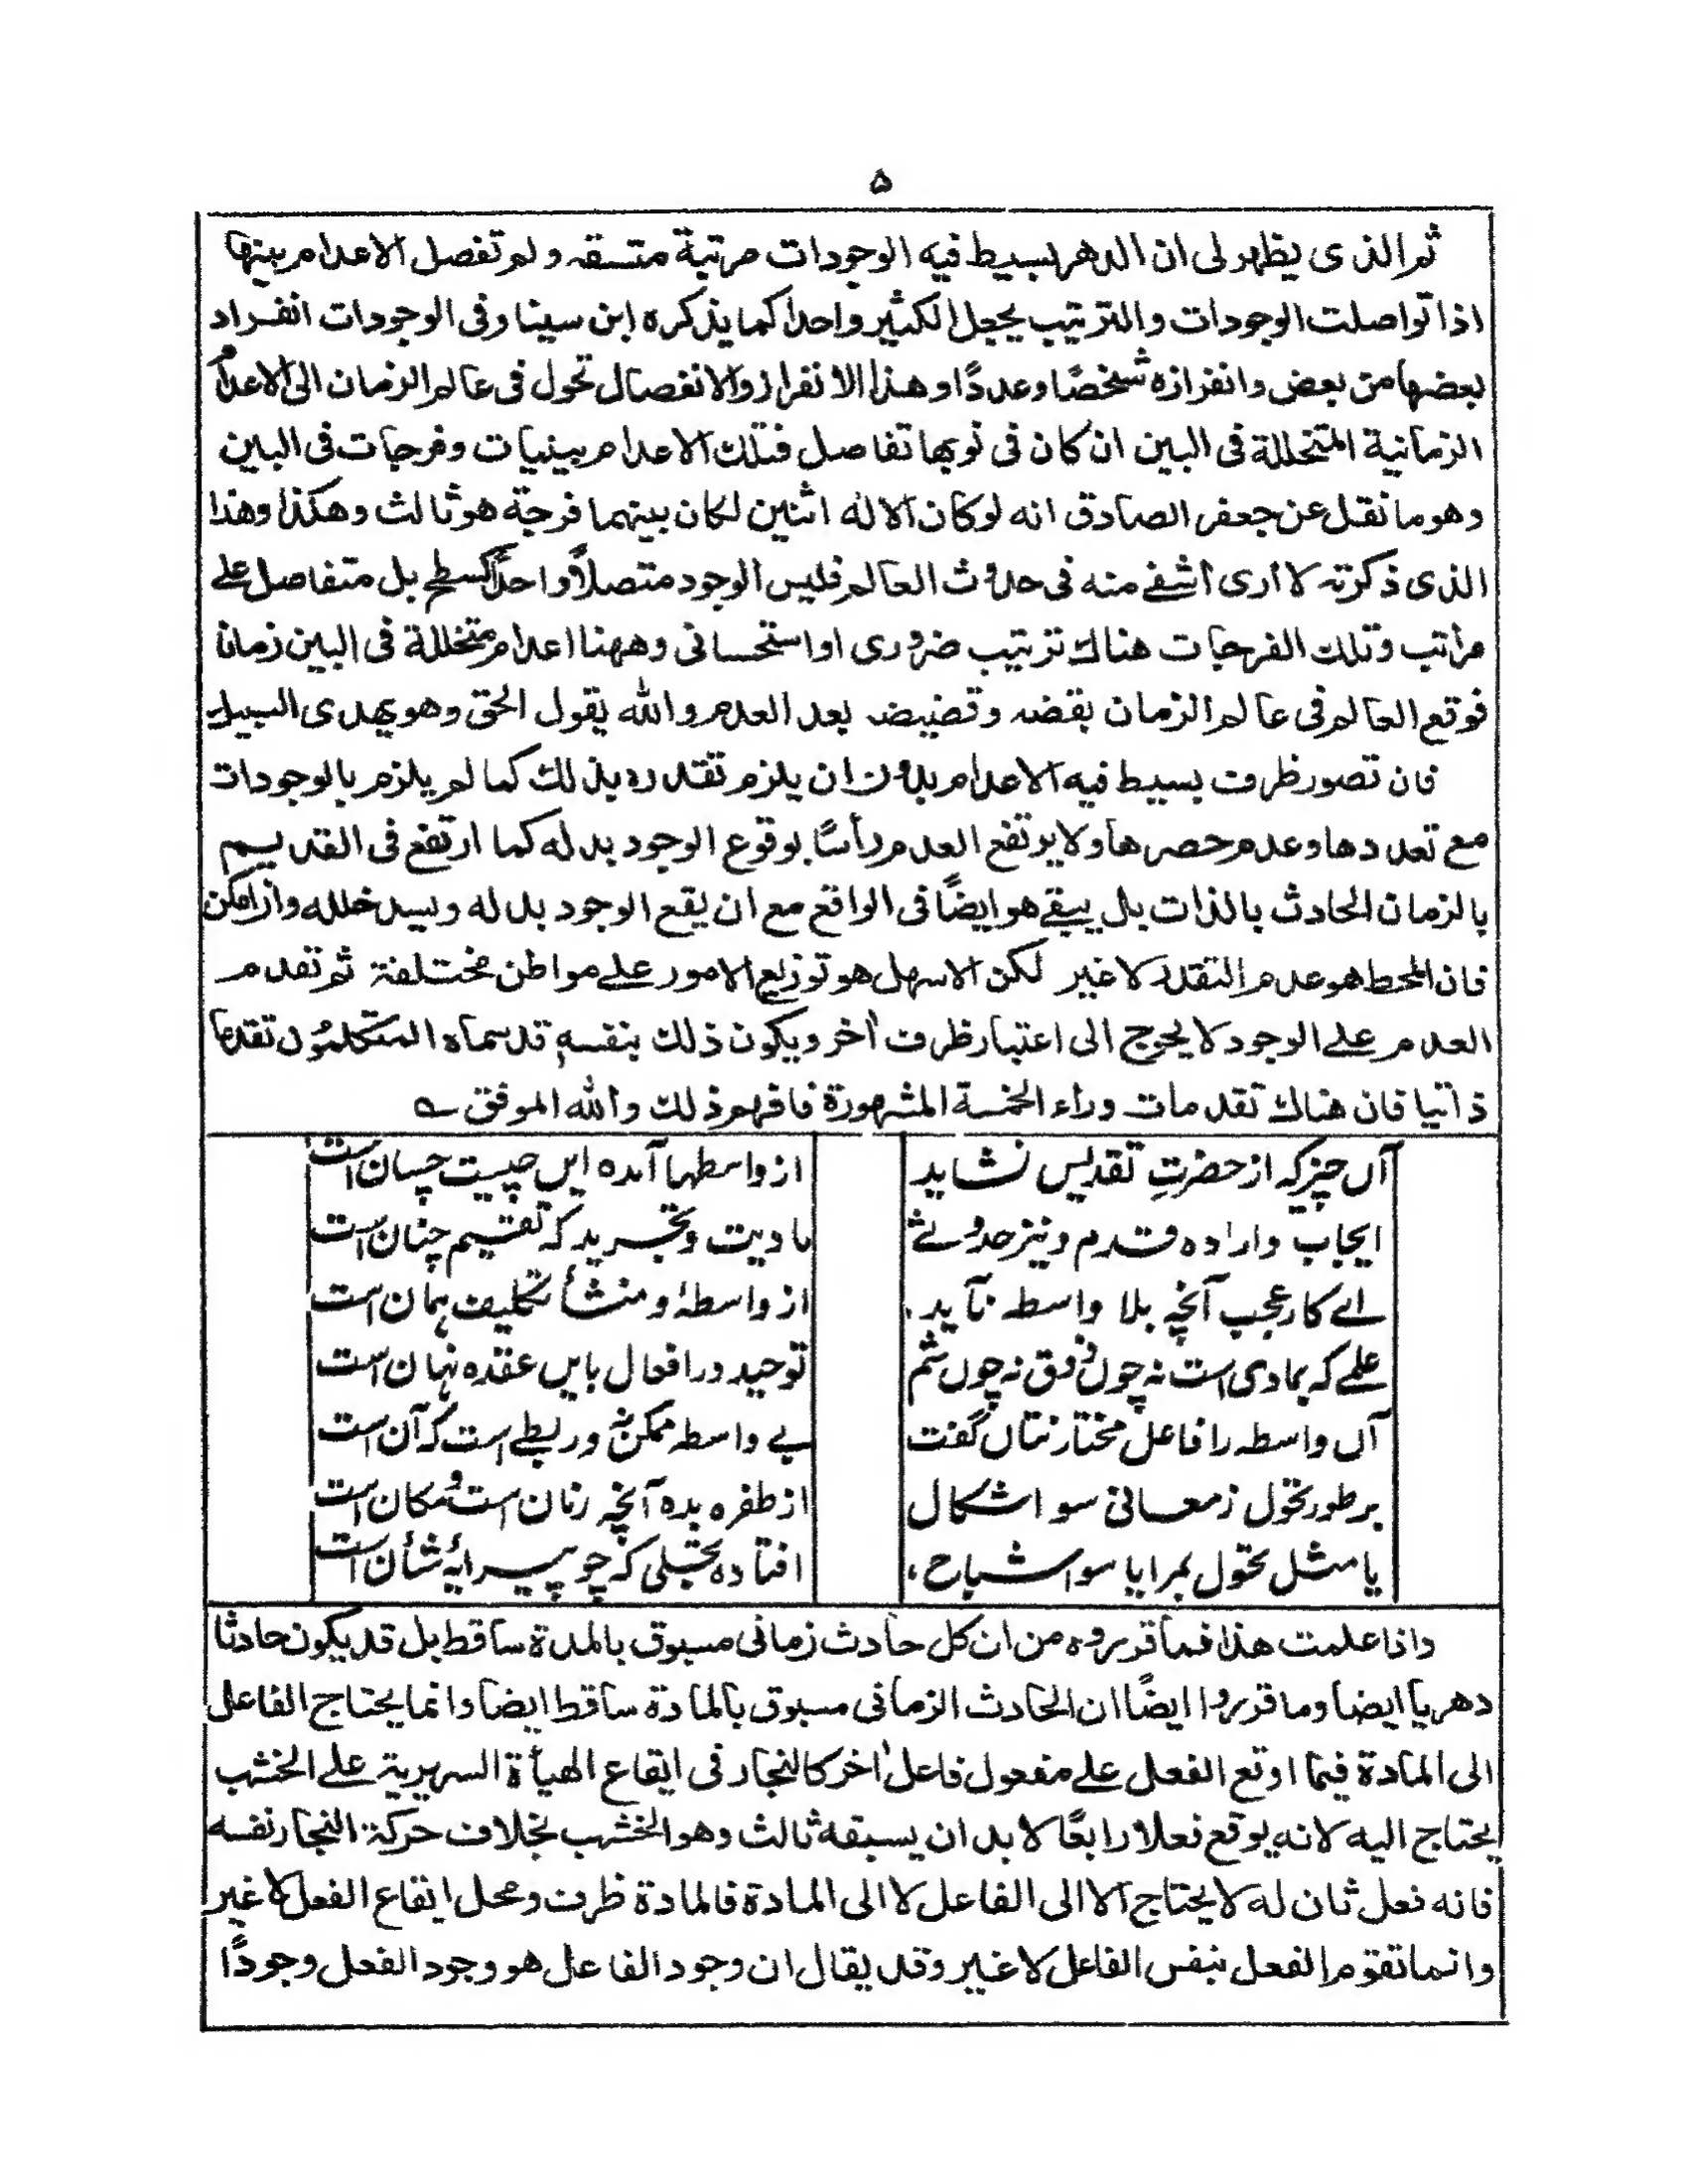 ۵
ثم الذی یظهر لی ان الدهر بسیط فیه الوجودات مرتبة متسقه ولم تفصل الاعدام بینها
اذا تواصلت الوجودات والترتیب یجعل الکثیر واحدا کما یذکره ابن سینا وفی الوجودات انفراد
بعضها من بعض وانفرازه شخصًا وعددًا وهذا الانفراز والانفصال تحول فی عالم الزمان الی الاعدام
الزمانیة المتخللة فی البین ان کان فی نوبها تفاصل فتلك الاعدام بینیات وفرجات فی البین
وهو ما نقل عن جعفر الصادق انه لو کان الاله اثنین لکان بینهما فرجة هو ثالث وهکذا وهذا
الذی ذکرته لا اری اشفے منه فی حدوث العالم فلیس الوجود متصلاً واحدًا کسطح بل متفاصل علے
مراتب وتلك الفرجات هناك ترتیب ضروری او استحسانی وههنا اعدام متخللة فی البین زمانا
فوقع العالم فی عالم الزمان بقضه وقضیضه بعد العدم والله یقول الحق وهو یهدی السبیل
فان تصور ظرف بسیط فیه الاعدام بدون ان یلزم تقدره بذلك کما لم یلزم بالوجودات
مع تعددها وعدم حصرها ولا یرتفع العدم رأسًا بوقوع الوجود بدله کما ارتفع فی القدیم
بالزمان الحادث بالذات بل یبقے هو ایضًا فی الواقع مع ان یقع الوجود بدله ویسد خلله وان امکن
فان المحط هو عدم التقدر لا غیر لکن الاسهل هو توزیع الامور علے مواطن مختلفة ثم تقدم
العدم علے الوجود لا یحوج الی اعتبار ظرف اٰخر ویکون ذلك بنفسهٖ قد سماه المتکلمون تقدما
ذاتیا فان هناك تقدمات وراء الخمسة المشهورة فافهم ذلك والله الموفق ؎
آں چیز که از حضرتِ تقدیس نشاید از واسطها آمده ایں چیست چسان است
ایجاب واراده وقدم ونیز حدوثے مادیت وتجرید که تقسیم چنان است
اے کار عجب آنچه بلا واسطه ناید از واسطهٔ ومنشأ تکلیف همان است
علمے که بمادی است نه چوں ذوق نه چوں شم توحید در افعال بایں عقده نهان است
آں واسطه را فاعل مختار نتاں گفت بے واسطه ممکن نه وربطے است که آن است
بر طور تحول ز معانی سو اشکال از طفره بده آنچه زمان است ومکان است
یا مثل تحول بمرایا سو اشباح، افتاده تجلی که چو پیرایۂ شأن است
واذا علمت هذا فما قرروه من ان کل حادث زمانی مسبوق بالمدة ساقط بل قد یکون حادثا
دهریا ایضا وما قرروا ایضًا ان الحادث الزمانی مسبوق بالمادة ساقط ایضا وانما یحتاج الفاعل
الی المادة فیما اوقع الفعل علے مفعول فاعل اٰخر کالنجار فی ایقاع الهیأة السریریة علے الخشب
یحتاج الیه لانه یوقع فعلا رابعًا لا بد ان یسبقه ثالث وهو الخشب بخلاف حرکة النجار نفسه
فانه فعل ثان له لا یحتاج الا الی الفاعل لا الی المادة فالمادة ظرف ومحل ایقاع الفعل لا غیر
وانما تقوم الفعل بنفس الفاعل لا غیر وقد یقال ان وجود الفاعل هو وجود الفعل وجودًا